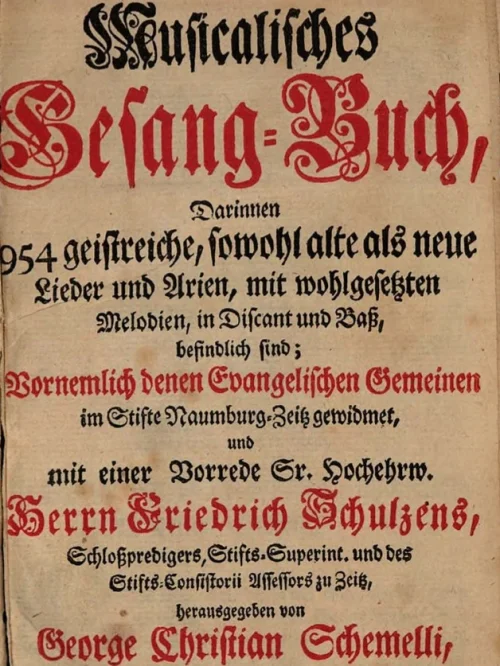 Musicalisches
Gesang-Buch,
Darinnen
954 geistreiche, sowohl alte als neue
Lieder und Arien, mit wohlgesetzten
Melodien, in Discant und Baß,
befindlich sind;
Vornemlich denen Evangelischen Gemeinen
im Stifte Naumburg-Zeitz gewidmet,
und
mit einer Vorrede Sr. Hochehrw.
Herrn Friedrich Schulzens,
Schloßpredigers, Stifts-Superint. und des
Stifts-Consistorii Assessors zu Zeitz,
herausgegeben von
George Christian Schemelli,